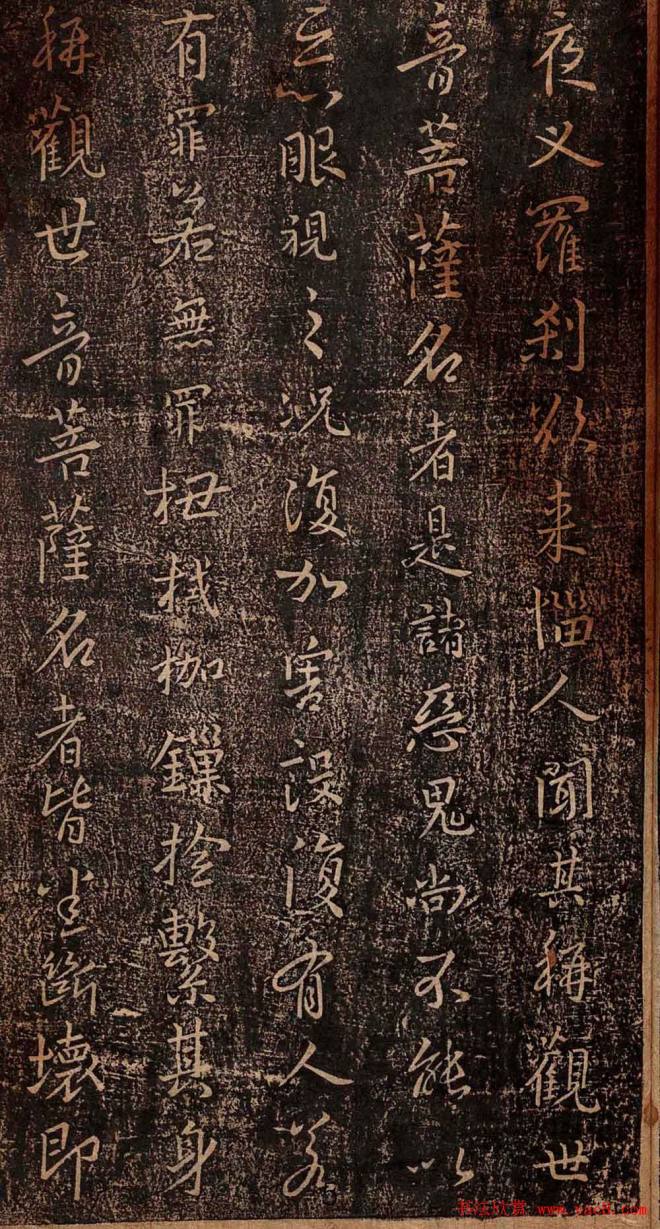 夜叉羅刹欲来惱人聞其稱觀世
音菩薩名者是諸惡鬼尚不能以
惡眼視之況復加害設復有人若
有罪若無罪杻械枷鏁撿繫其身
稱觀世音菩薩名者皆悉斷壞即
书法欣赏 www.yac8.com